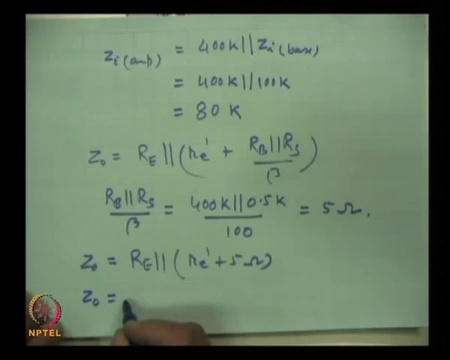 Zi(amp) = 400K || Zi(base)
= 400K || 100K
= 80 K
Zo = RE || (re' + RB||RS / β)
RB||RS / β = 400K || 0.5K / 100 = 5 Ω.
Zo = RE || (re' + 5Ω)
Zo =
NPTEL